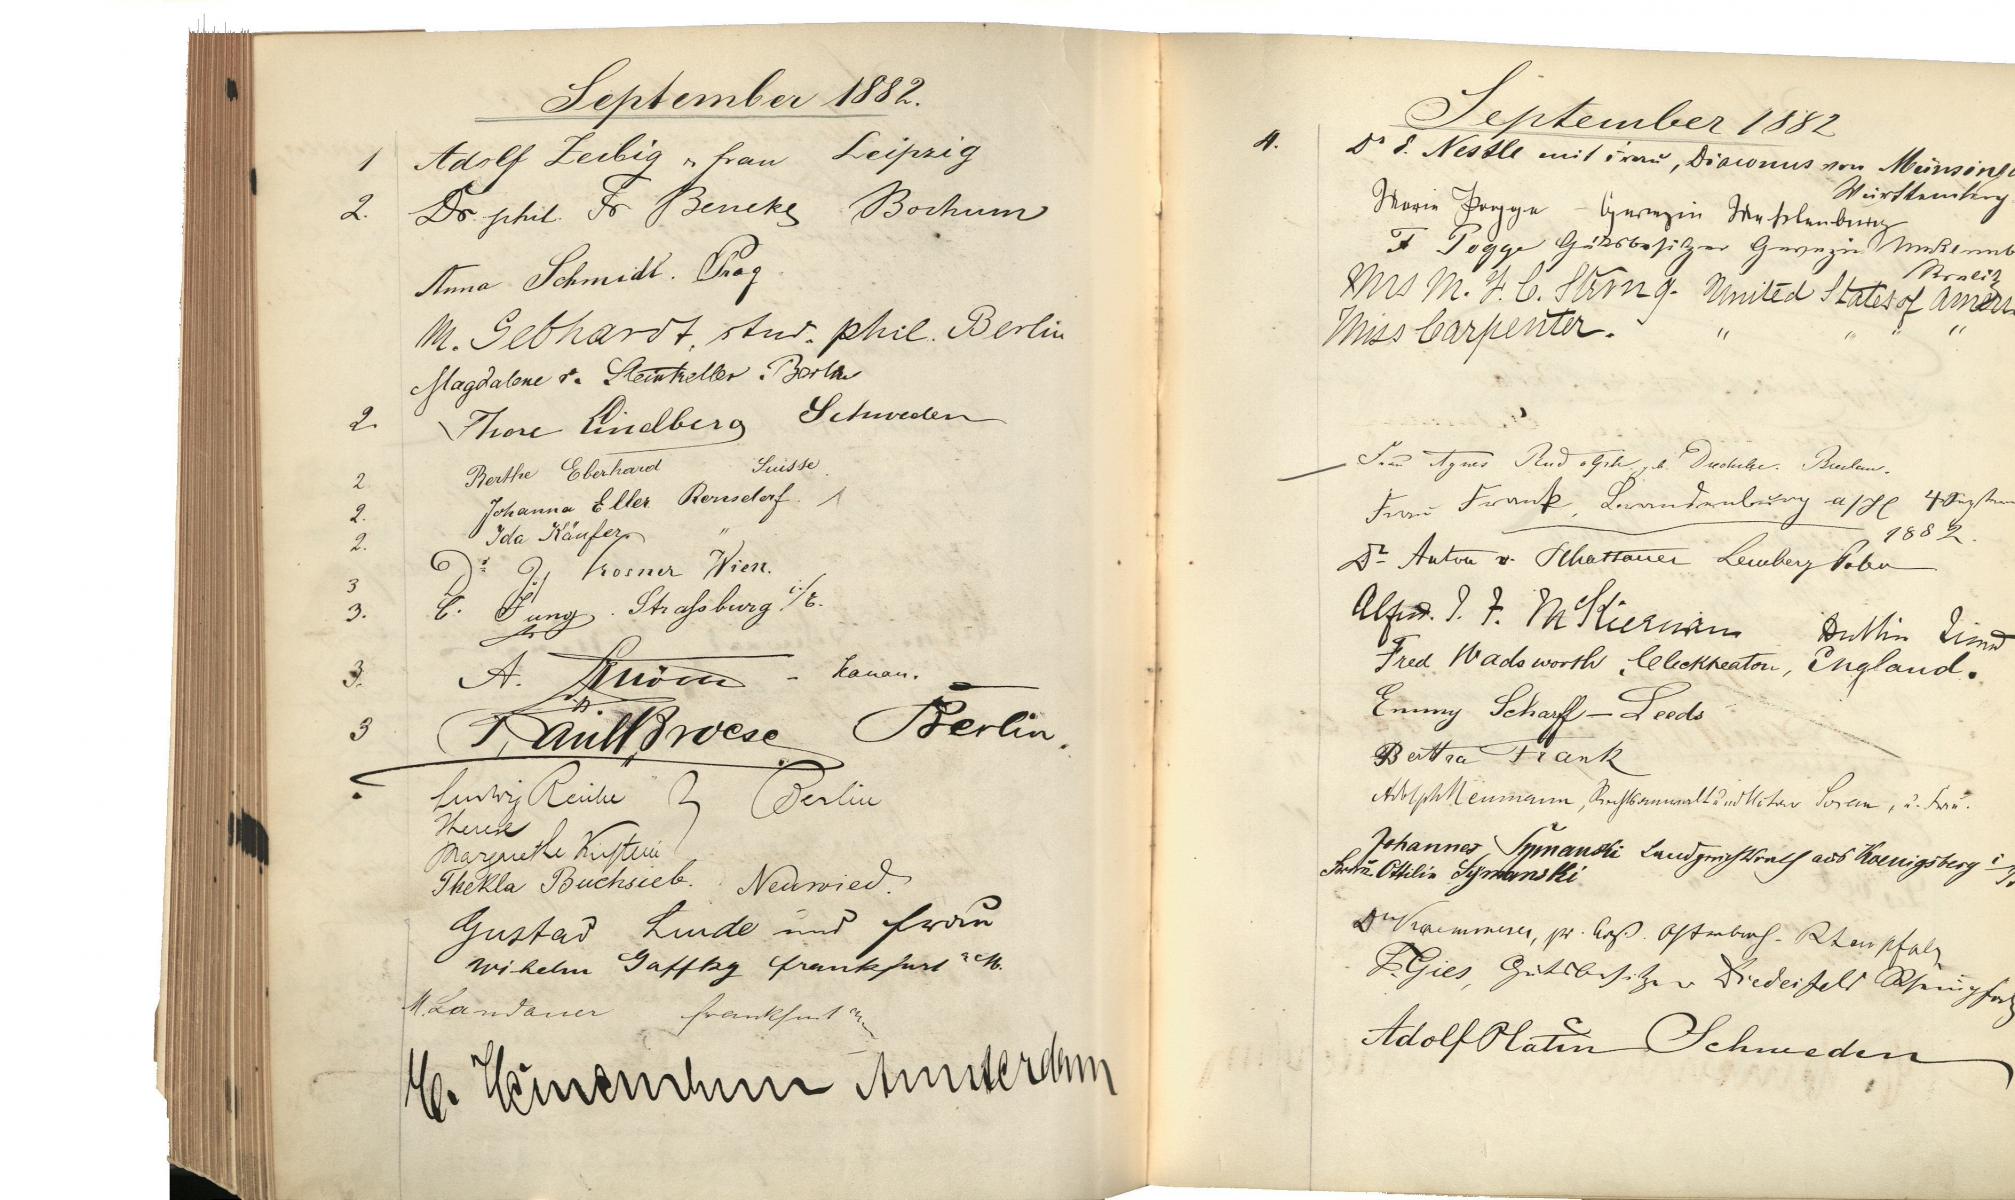 September 1882.
1 Adolf Zerbig u frau Leipzig
2. Dr. phil. Fr Beneke Bochum
Anna Schmidt. Prag
M. Gebhardt, stud. phil. Berlin
Magdalene v. Steinkeller. Berlin
2. Thore Lindberg Schweden
2 Berthe Eberhard Suisse
2. Johanna Eller Remsdorf.
2. Ida Käufer "
3 Dr. Krosner Wien.
3. C. Jung. Strassburg i/E.
3. A. - Hanau.
3 Paul Broese Berlin.
Ludwig Reiche Berlin
Therese
Margarethe
Thekla Buchsieb. Neuwied.
Gustav Linde und Frau
Wilhelm Gaffky Frankfurt a M.
M. Landauer Frankfurt a/M
H. Amsterdam
September 1882
4. Dr E. Nestle mit Frau, Diaconus von Münsingen
Württemberg
Marie Pogge - Gevezin Mecklenburg
F Pogge Gutsbesitzer Gevezin
Strelitz
Mrs M. F. C. Strong. United States of America
Miss Carpenter. " " " "
Frau Agnes Rudolph geb. Breslau.
Frau Frank, Brandenburg a/H 4 Septem
1882.
Dr Anton v. Lemberg
Alfred. J. F. McKiernan Dublin
Fred Wadsworth, Cleckheaton, England.
Emmy Scharff - Leeds
Bertha Frank
Adolph Neumann, Rechtsanwalt und Notar Sorau, u. Frau.
Johannes Symanski Landgerichtsrath aus Koenigsberg i/Pr
Frau Ottilie Symanski
Dr pr. Arzt. Rheinpfalz
F. Gies, Gutsbesitzer Diedesfeld Rheinpfalz
Adolf Platin Schweden